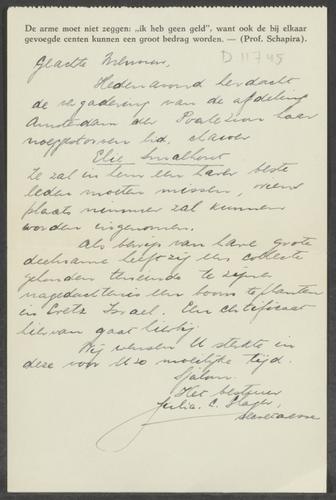 De arme moet niet zeggen: „ik heb geen geld", want ook de bij elkaar
gevoegde centen kunnen een groot bedrag worden. — (Prof. Schapira).
D 11745
Geachte Mevrouw,
Hedenavond herdacht
de vergadering van de afdeling
Amsterdam der Poalezion haar
lid, chawer
Elie Smalhout
Ze zal in hem een harer beste
leden moeten missen, wiens
plaats nimmer zal kunnen
worden ingenomen.
Als bewijs van hare grote
deelname heeft zij een collecte
gehouden teneinde te zijner
nagedachtenis een boom te planten
in Eretz Israel. Een certificaat
hiervan gaat hierbij
Wij wensen U sterkte in
deze voor U zo moeilijke tijd.
Sjalom
Het bestuur
Julia C. Slager,
secretaresse